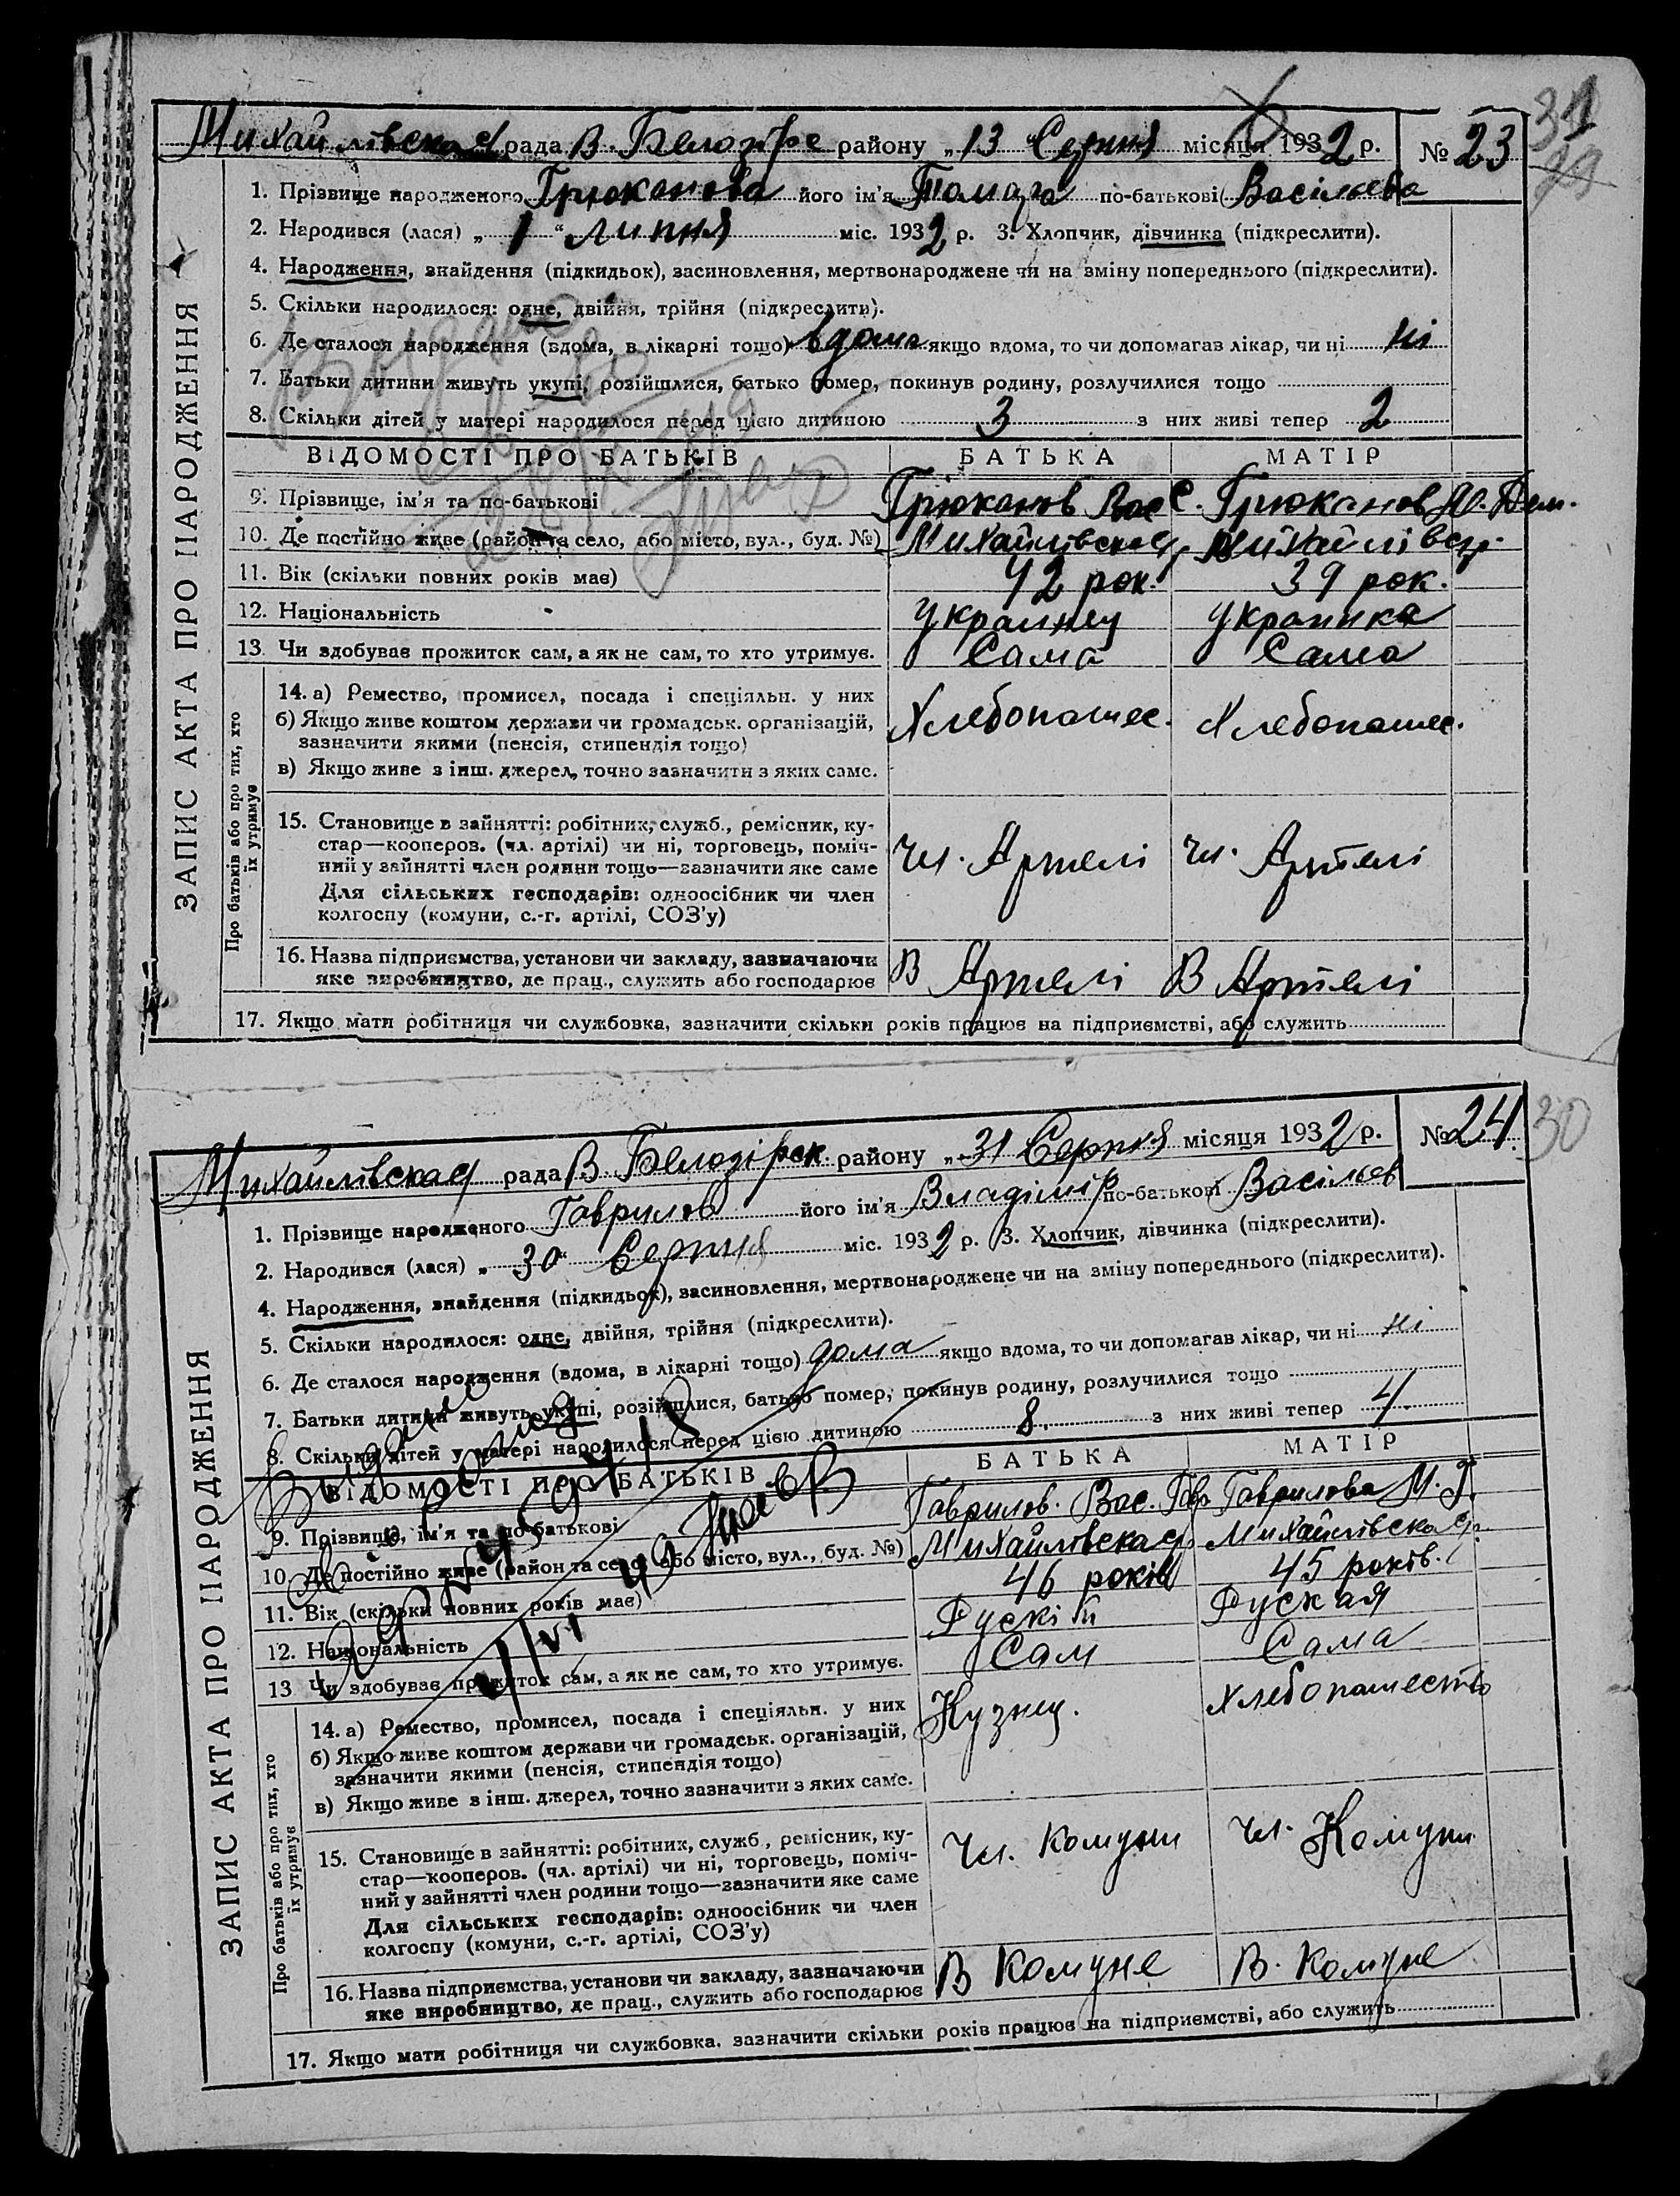 31
29
Михайлівская рада В. Белозірре району „13 "Серпня місяця 1932 р. № 23
1. Прізвище народженого Грюканова його ім'я Томара по-батькові Васільевна
2. Народився (лася) „ 1 " липня міс. 1932 р. 3. Хлопчик, дівчинка (підкреслити).
4. Народження, знайдення (підкидьок), засиновлення, мертвонароджене чи на зміну попереднього (підкреслити).
5. Скільки народилося: одне, двійня, трійня (підкреслити).
6. Де сталося народження (вдома, в лікарні тощо) вдома якщо вдома, то чи допомагав лікар, чи ні ні
7. Батьки дитини живуть укупі, розійшлися, батько помер, покинув родину, розлучилися тощо
8. Скільки дітей у матері народилося перед цією дитиною 3 з них живі тепер 2
ВІДОМОСТІ ПРО БАТЬКІВ БАТЬКА МАТІР
9. Прізвище, ім'я та по-батькові Грюканов Вас С. Грюканов Ю. Дем.
10. Де постійно живе (район та село, або місто, вул., буд. №) Михайлівская
11. Вік (скільки повних років має) 42 рок. 39 рок.
12. Національність Украинец Украинка
13. Чи здобуває прожиток сам, а як не сам, то хто утримує. Сама Сама
14. а) Ремество, промисел, посада і спеціяльн. у них Хлебопашес. Хлебопашес.
б) Якщо живе коштом держави чи громадськ. організацій,
зазначити якими (пенсія, стипендія тощо)
в) Якщо живе з інш. джерел, точно зазначити з яких саме.
15. Становище в зайнятті: робітник, служб., ремісник, ку-
стар—кооперов. (чл. артілі) чи ні, торговець, поміч-
ний у зайнятті член родини тощо—зазначити яке саме Чл. Артелі Чл. Артелі
Для сільських господарів: одноосібник чи член
колгоспу (комуни, с.-г. артілі, СОЗ'у)
16. Назва підприємства, установи чи закладу, зазначаючи
яке виробництво, де прац., служить або господарює В Артелі В Артелі
17. Якщо мати робітниця чи службовка, зазначити скільки років працює на підприємстві, або служить
ЗАПИС АКТА ПРО НАРОДЖЕННЯ
Про батьків або про тих, хто
їх утримує
30
Михайлівская рада В. Белозірск. району „ 31 Серпня місяця 1932 р. № 24
1. Прізвище народженого Гаврилов його ім'я Владімір по-батькові Васільев
2. Народився (лася) „ 30 " Серпня міс. 1932 р. 3. Хлопчик, дівчинка (підкреслити).
4. Народження, знайдення (підкидьок), засиновлення, мертвонароджене чи на зміну попереднього (підкреслити).
5. Скільки народилося: одне, двійня, трійня (підкреслити).
6. Де сталося народження (вдома, в лікарні тощо) дома якщо вдома, то чи допомагав лікар, чи ні ні
7. Батьки дитини живуть укупі, розійшлися, батько помер, покинув родину, розлучилися тощо
8. Скільки дітей у матері народилося перед цією дитиною 8 з них живі тепер 4
ВІДОМОСТІ ПРО БАТЬКІВ БАТЬКА МАТІР
9. Прізвище, ім'я та по-батькові Гаврилов. Вас. Гаврилова М.
10. Де постійно живе (район та село, або місто, вул., буд. №) Михайлівская Михайлівская
11. Вік (скільки повних років має) 46 років 45 років.
12. Національність Рускій Руская
13. Чи здобуває прожиток сам, а як не сам, то хто утримує. Сам Сама
14. а) Ремество, промисел, посада і спеціяльн. у них Кузнец. Хлебопашество
б) Якщо живе коштом держави чи громадськ. організацій,
зазначити якими (пенсія, стипендія тощо)
в) Якщо живе з інш. джерел, точно зазначити з яких саме.
15. Становище в зайнятті: робітник, служб., ремісник, ку-
стар—кооперов. (чл. артілі) чи ні, торговець, поміч-
ний у зайнятті член родини тощо—зазначити яке саме Чл. Комуни Чл. Комуни
Для сільських господарів: одноосібник чи член
колгоспу (комуни, с.-г. артілі, СОЗ'у)
16. Назва підприємства, установи чи закладу, зазначаючи
яке виробництво, де прац., служить або господарює В Комуне В. Комуне
17. Якщо мати робітниця чи службовка, зазначити скільки років працює на підприємстві, або служить
ЗАПИС АКТА ПРО НАРОДЖЕННЯ
Про батьків або про тих, хто
їх утримує